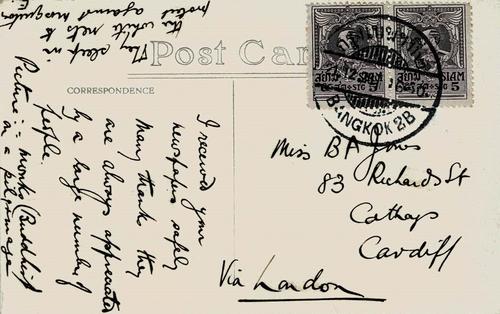 Post Car
CORRESPONDENCE
I received your
newspapers safely
many thanks they
are always appreciated
by a large number of
people.
Picture:- monks (Buddhist)
on a pilgrimage
They sleep in
the white nets to
protect against mosquitoes
สยาม
SIAM
5
5
BANGKOK 2B
Miss B A Jones
83 Richards St
Cathays
Cardiff
Via London